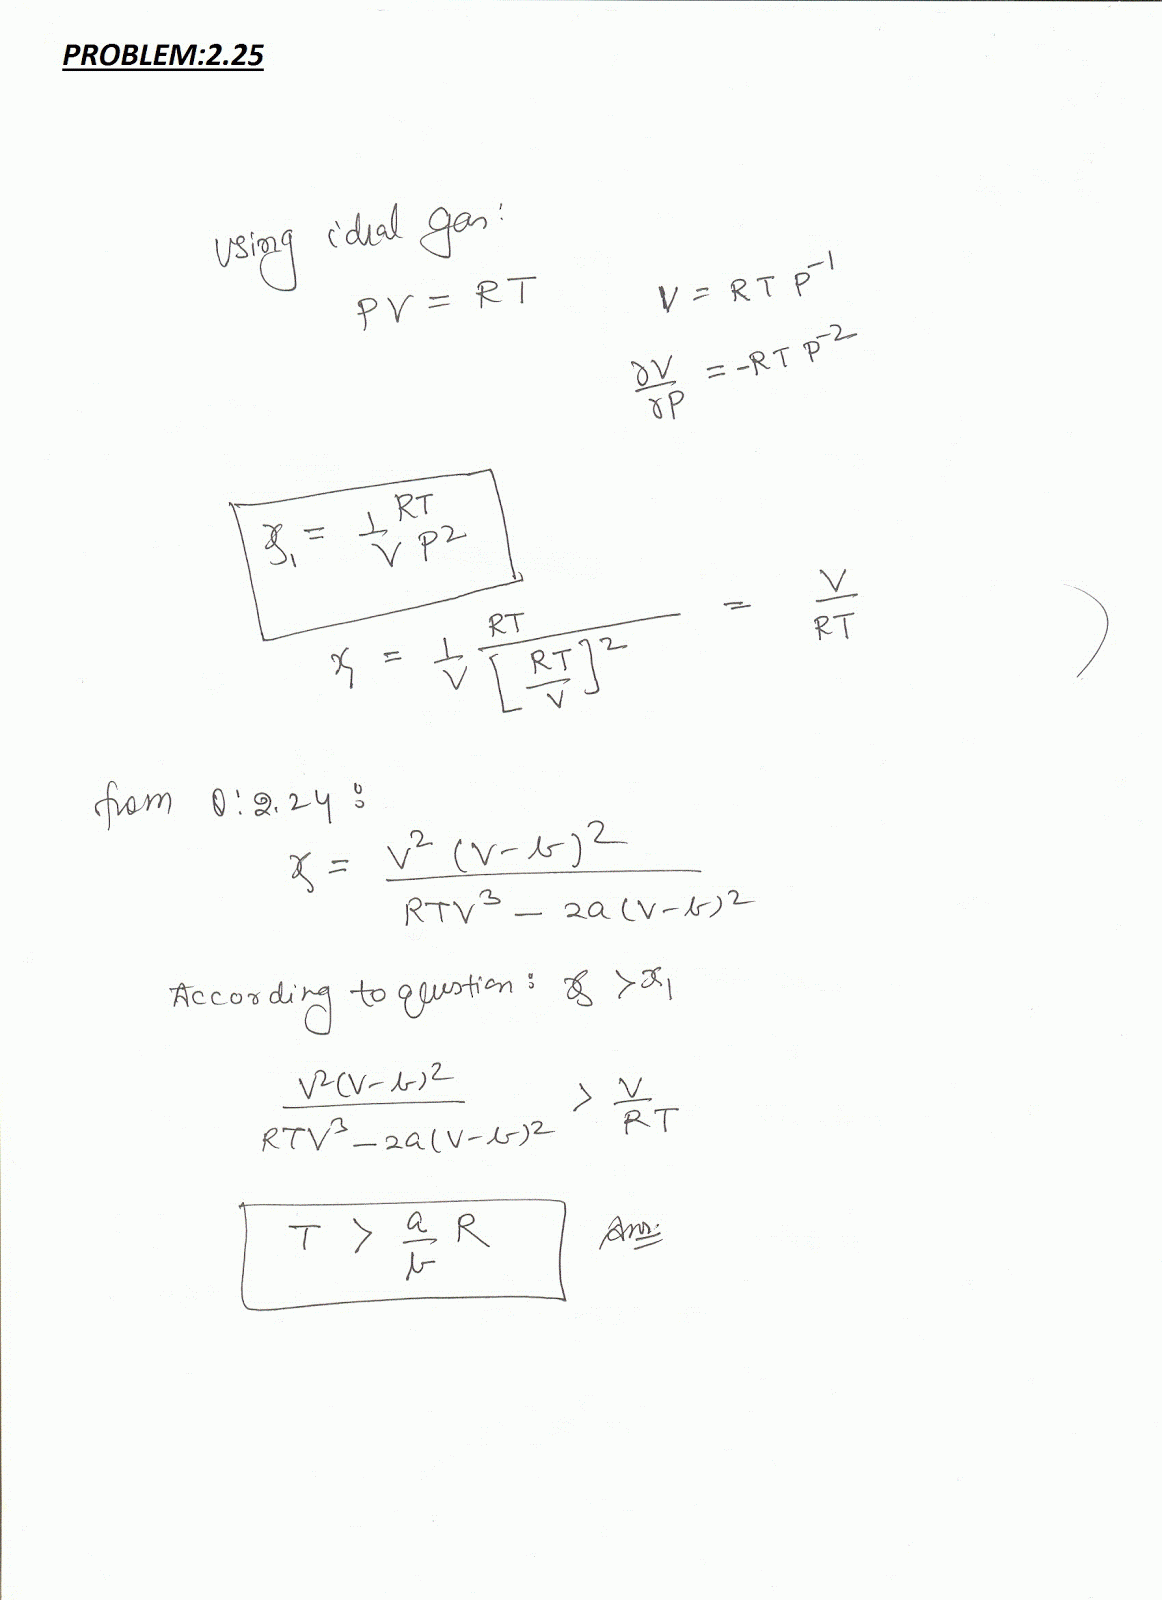 PROBLEM:2.25
using ideal gas:
PV = RT
V = RT P⁻¹
∂V/∂P = -RT P⁻²
ϰ₁ = 1/V RT/P²
ϰ₁ = 1/V RT/[RT/V]² = V/RT
from Q:2.24:
ϰ = V²(V-b)²/RTV³ - 2a(V-b)²
According to question: ϰ > ϰ₁
V²(V-b)²/RTV³ - 2a(V-b)² > V/RT
T > a/b R Ans: